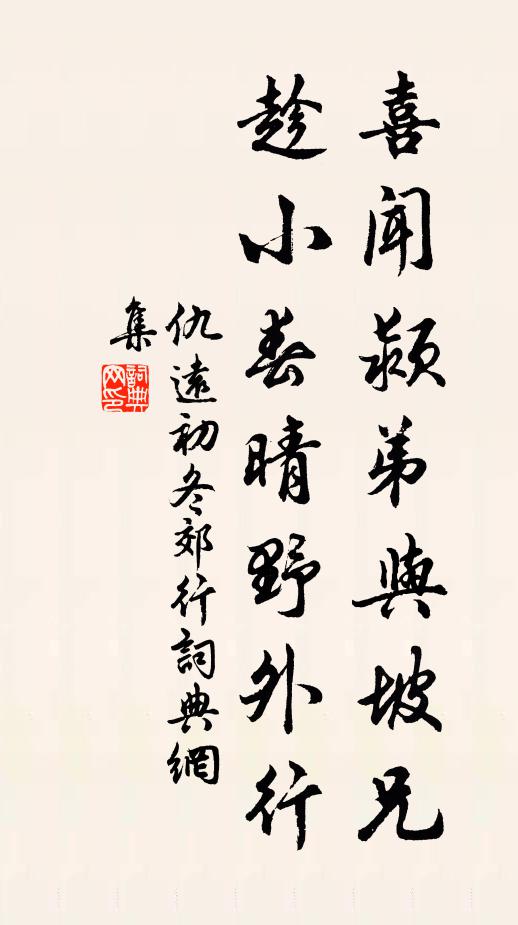 喜聞潁弟與坡兄
趁小春晴野外行
仇遠初冬郊行詞典網
集
詞典網印